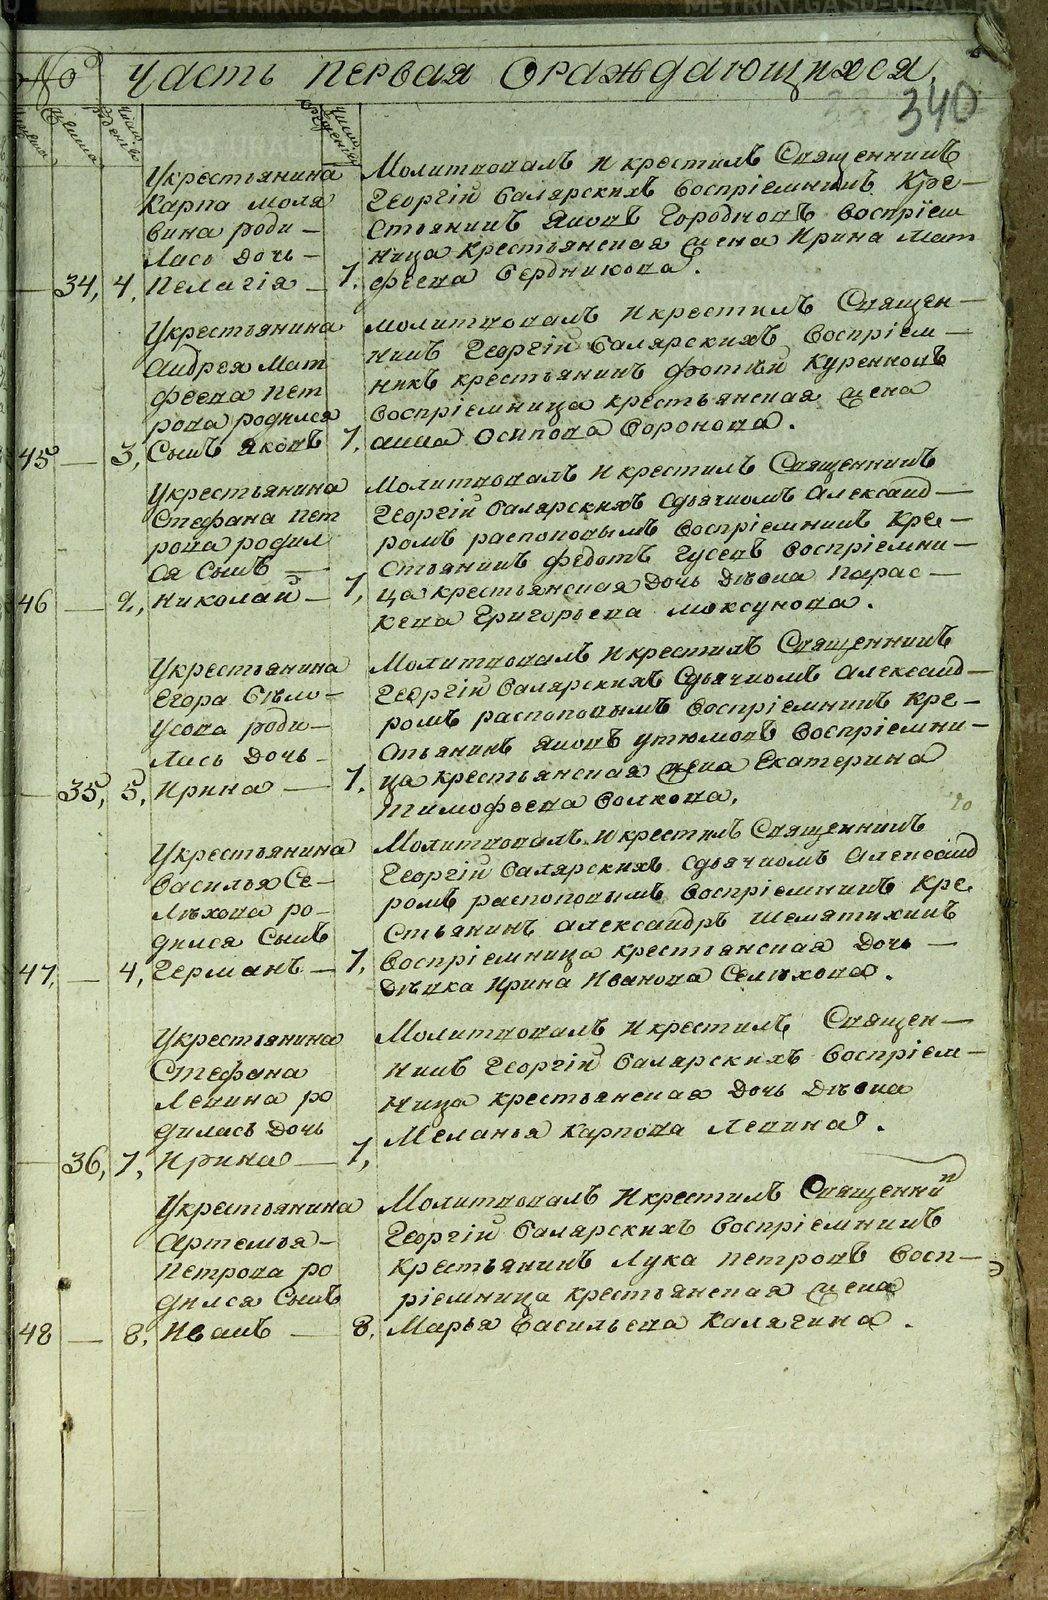 № часть первая Ораждающихся
340
Укрестьянина
Карпа Моля
вина роди –
лась дочь –
34, 4, Пелагія – 7.
Молитвовалъ и крестилъ Священникъ
Георгій Салярскихъ Воспріемникъ Кре –
стьянинъ Яковъ Городновъ Воспріем
ница крестьянская жена Ирина Мат
феева Сердникова.
Укрестьянина
Андрея Мат
феева Пет
рова родился
45 — 3, Сынъ Яковъ 7.
Молитвовалъ и крестилъ Священ –
никъ Георгій Салярскихъ Воспріем –
никъ крестьянинъ Фотий Куренновъ
Воспріемница крестьянская жена
Анна Осипова Воронова.
Укрестьянина
Стефана Пет
рова родил
ся Сынъ —
46 — 2, Николай – 7,
Молитвовалъ и крестилъ Священникъ
Георгій Салярскихъ Сдьячкомъ Александ –
ромъ Распоповымъ Воспріемникъ Кре –
стьянинъ Федотъ Гусевъ Воспріемни –
ца крестьянская Дочь Дѣвка Парас –
кева Григорьева Моксунова.
Укрестьянина
Егора Бѣло –
усова роди –
лась Дочь –
35, 5, Ирина — 7.
Молитвовалъ и крестилъ Священникъ
Георгій Салярскихъ Сдьячкомъ Александ –
ромъ Распоповымъ Воспріемникъ Кре –
стьянинъ Яковъ Утюмовъ Воспріемни –
ца крестьянская жена Екатерина
Тимофеева Волкова.
Укрестьянина
Василья Се –
лѣхова ро –
дился Сынъ
47, — 4, Германъ – 7,
Молитвовалъ и крестилъ Священникъ
Георгій Салярскихъ Сдьячкомъ Александ
ромъ Распоповымъ Воспріемникъ Кре
стьянинъ Александръ Шемятихинъ
Воспріемница крестьянская Дочь —
Дѣвка Ирина Иванова Селѣхова.
Укрестьянина
Стефана
Лепина ро
дилась Дочь
36, 7, Ирина — 7,
Молитвовалъ и крестилъ Священ –
никъ Георгій Салярскихъ Воспріем –
ница крестьянская Дочь Дѣвка
Меланья Карпова Лепина.
Укрестьянина
Артемья –
Петрова ро
дился Сынъ
48 — 8, Иванъ — 8.
Молитвовалъ и крестилъ Священни
Георгій Салярскихъ Воспріемникъ
Крестьянинъ Лука Петровъ Восп –
ріемница крестьянская жена
Марья Васильева Калягина.
METRIKI.GASO-URAL.RU